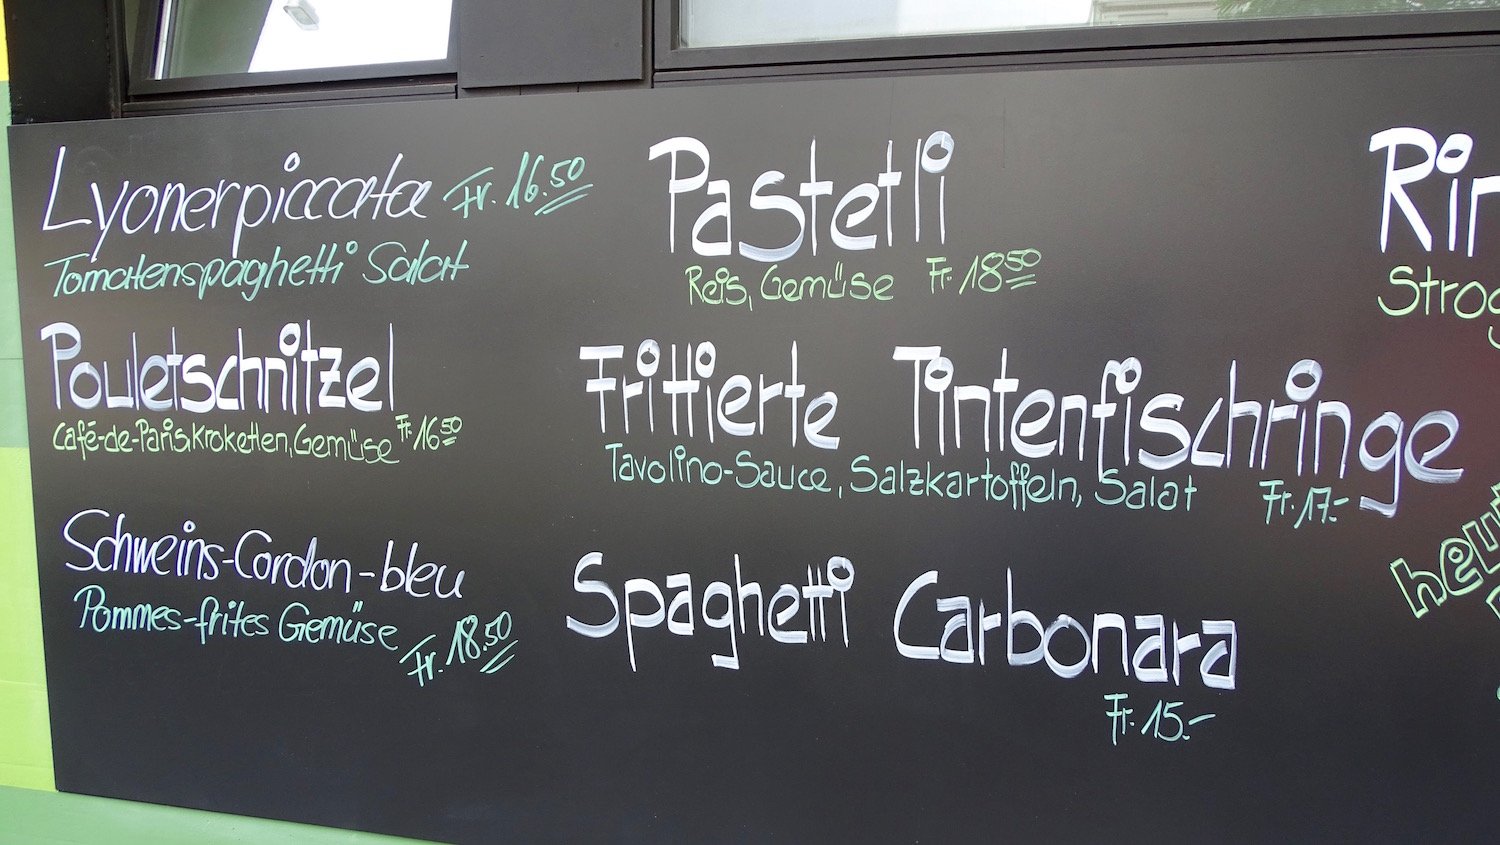 Lyonerpiccata Fr. 16.50
Tomatenspaghetti Salat
Pouletschnitzel
Café-de-Paris, Kroketten, Gemüse Fr. 16.50
Schweins-Cordon-bleu
Pommes-frites Gemüse Fr. 18.50
Pastetli
Reis, Gemüse Fr. 18.50
Frittierte Tintenfischringe
Tavolino-Sauce, Salzkartoffeln, Salat Fr. 17.-
Spaghetti Carbonara
Fr. 15.-
Rin
Strog
heut